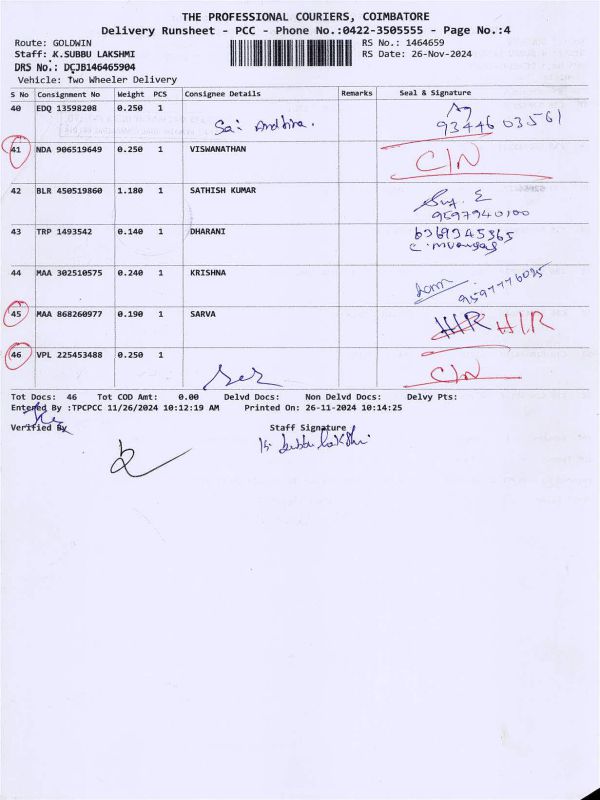 THE PROFESSIONAL COURIERS, COIMBATORE
Delivery Runsheet - PCC - Phone No.:0422-3505555 - Page No.:4
Route: GOLDWIN RS No.: 1464659
Staff: K.SUBBU LAKSHMI RS Date: 26-Nov-2024
DRS No.: DCJB146465904
Vehicle: Two Wheeler Delivery
S No Consignment No Weight PCS Consignee Details Remarks Seal & Signature
40 EDQ 13598208 0.250 1 Sai Andhira. 9344603561
41 NDA 906519649 0.250 1 VISWANATHAN C/N
42 BLR 450519860 1.180 1 SATHISH KUMAR 9597940100
43 TRP 1493542 0.140 1 DHARANI 6369345365
44 MAA 302510575 0.240 1 KRISHNA 9597776095
45 MAA 868260977 0.190 1 SARVA H/R H/R
46 VPL 225453488 0.250 1 C/N
Tot Docs: 46 Tot COD Amt: 0.00 Delvd Docs: Non Delvd Docs: Delvy Pts:
Entered By :TPCPCC 11/26/2024 10:12:19 AM Printed On: 26-11-2024 10:14:25
Verified By Staff Signature
K. Subbu lakshi